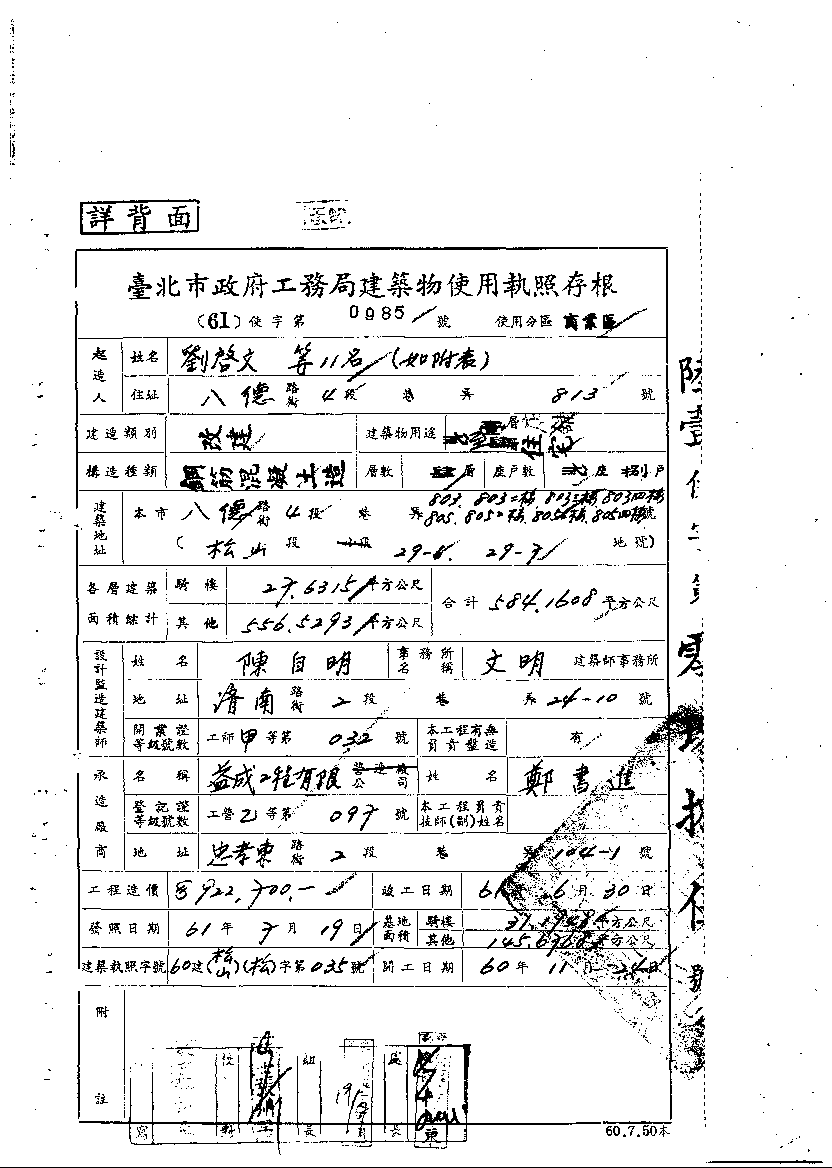 詳背面
臺北市政府工務局建築物使用執照存根
(61) 使字第 0985 號 使用分區 商業區
起造人 姓名 劉啓文 等11名 (如附表)
住址 八德 路街 4段 巷 弄 813 號
建造類別 改建 建築物用途 住宅
構造種類 鋼筋混凝土造 層數 肆層 座戶數 貳座 捌戶
建築地址 本市 八德 路街 4段 巷 弄 號
( 松山 段 小段 地號)
各層建築面積總計 騎樓 27.6315 平方公尺 合計 584.1608 平方公尺
其他 556.5293 平方公尺
設計監造建築師 姓名 陳自明 事務所名稱 文明 建築師事務所
地址 濟南 路街 2段 巷 弄 24-10 號
開業證等級號數 工師 甲 等第 032 號 本工程有無負責監造 有
承造廠商 名稱 益成工程有限 營造廠公司 姓名 鄭書進
登記證等級號數 工營 乙 等第 097 號 本工程負責技師(副)姓名
地址 忠孝東 路街 2段 巷 弄 104-1 號
工程造價 竣工日期 61年 6月 30日
發照日期 61年 7月 19日 基地面積 騎樓 平方公尺
其他 平方公尺
建築執照字號 60建(松山)(松)字第035號 開工日期 60年 11月 24日
附註
組長
60.7.50本